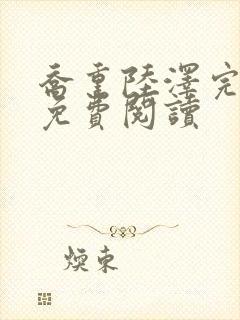 喬重陸澤完
免費閱讀
煙東